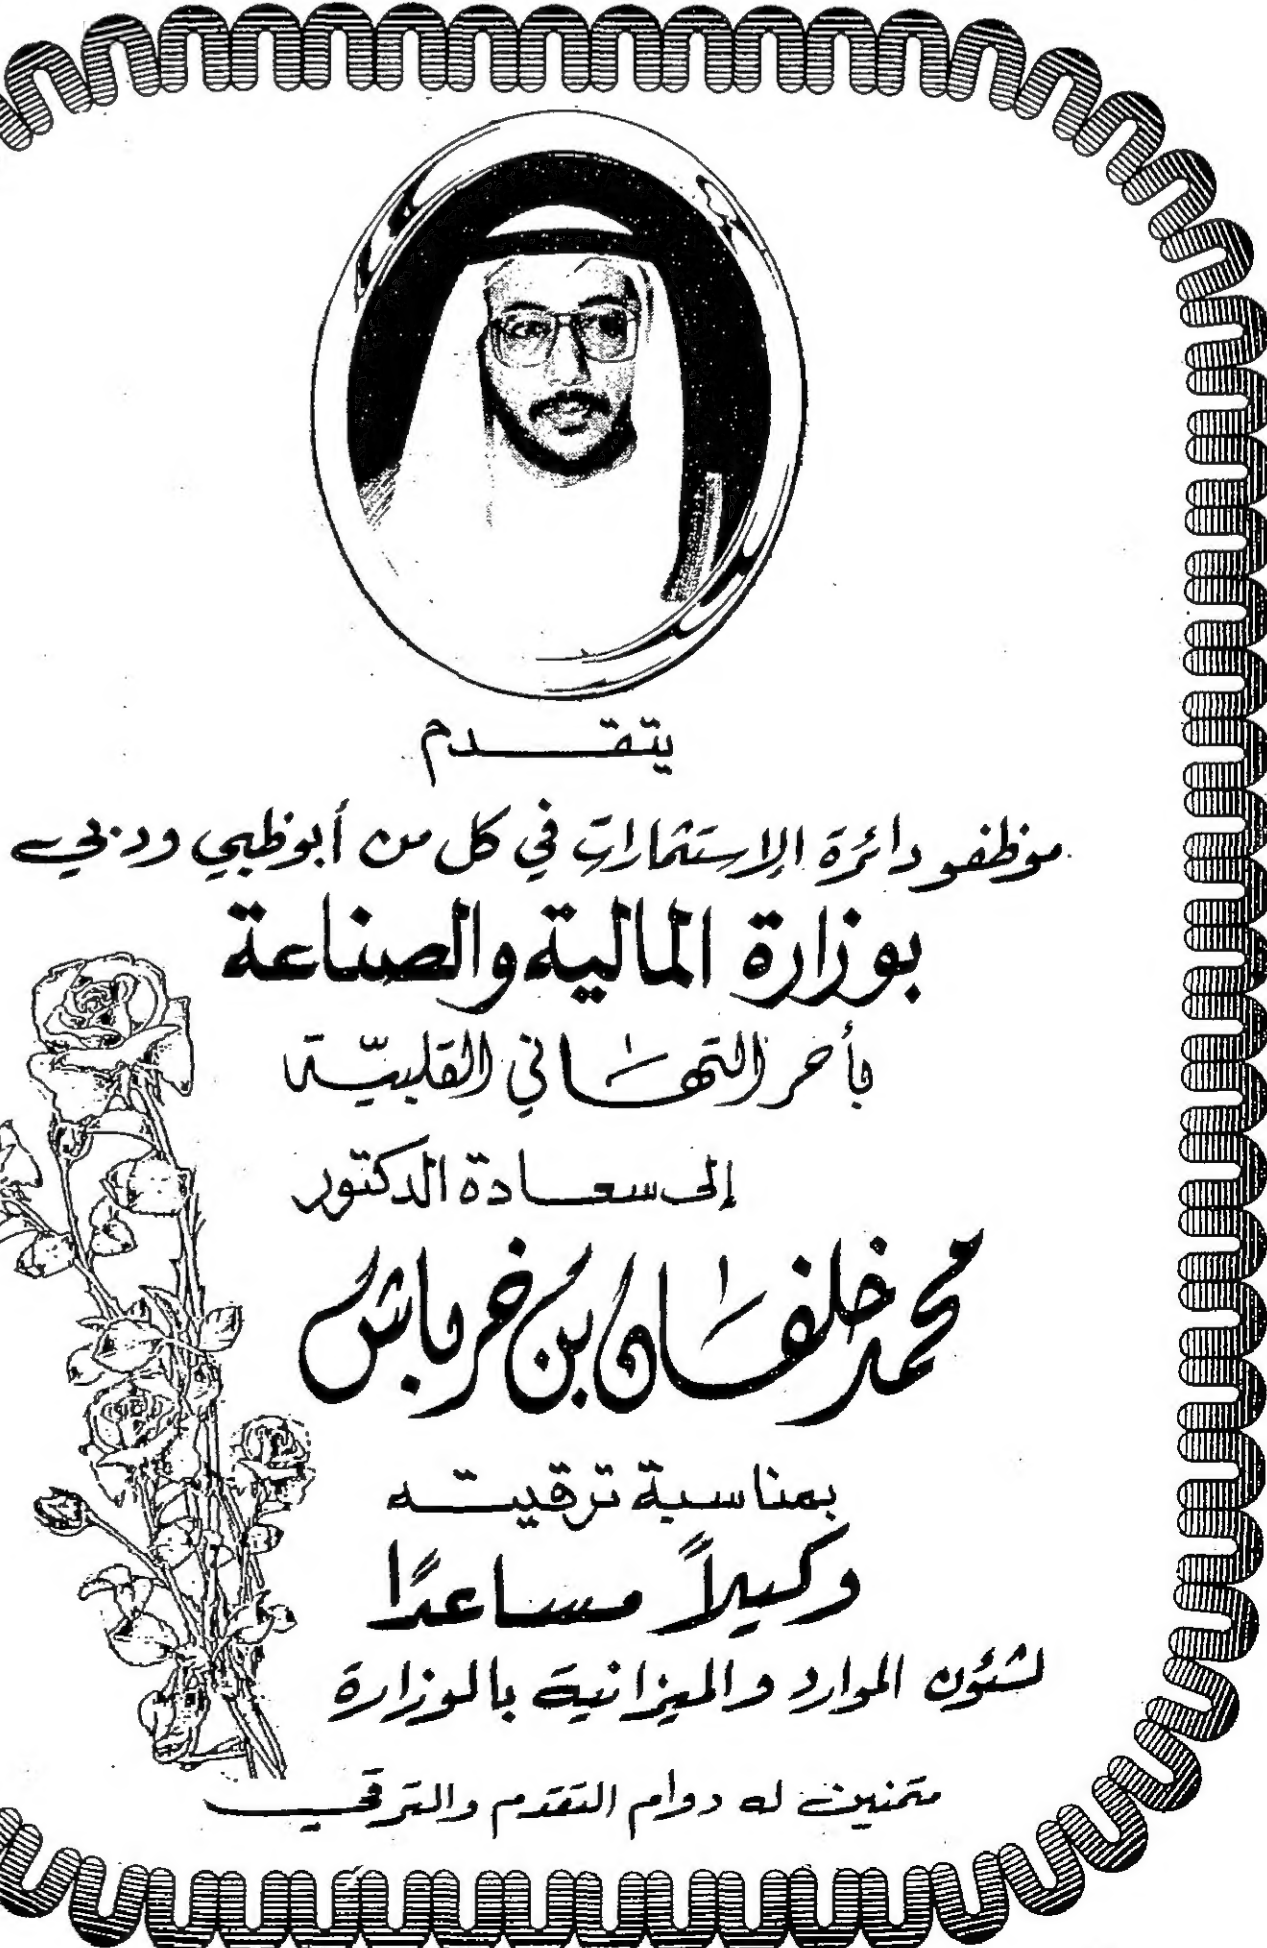 يتقدم
موظفو دائرة الإستثمارات في كل من أبوظبي ودبي
بوزارة المالية والصناعة
بأحر التهاني القلبيّة
إلى سعادة الدكتور
محمد خلفان بن خرباش
بمناسبة ترقيته
وكيلاً مساعدًا
لشئون الموارد والميزانية بالوزارة
متمنين له دوام التقدم والترقي